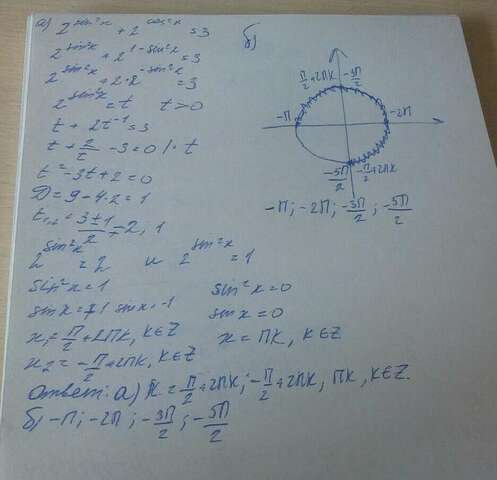 а) 2^sin²x + 2^cos²x = 3
2^sin²x + 2^1-sin²x = 3
2^sin²x + 2·2^-sin²x = 3
2^sin²x = t t>0
t + 2t^-1 = 3
t + 2/t - 3 = 0 |· t
t² - 3t + 2 = 0
D = 9 - 4·2 = 1
t₁,₂ = 3±1/2 = 2, 1
2^sin²x = 2 и 2^sin²x = 1
sin²x = 1 sin²x = 0
sin x = 1 sin x = -1 sin x = 0
x₁ = π/2 + 2πk, k∈Z x = πk, k∈Z
x₂ = -π/2 + 2πk, k∈Z
Ответ: а) x = π/2 + 2πk; -π/2 + 2πk, πk, k∈Z.
б) -π; -2π; -3π/2; -5π/2
б)
π/2 + 2πk -3π/2
-π -2π
-5π/2 -π/2 + 2πk
-π; -2π; -3π/2; -5π/2